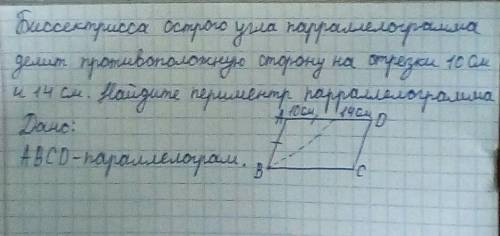 Биссектрисса острого угла парраллелограмма
делит противоположную сторону на отрезки 10 см
и 14 см. Найдите периментр парраллелограмма
Дано:
ABCD-параллелограм.
A 10см, 14см D
B C